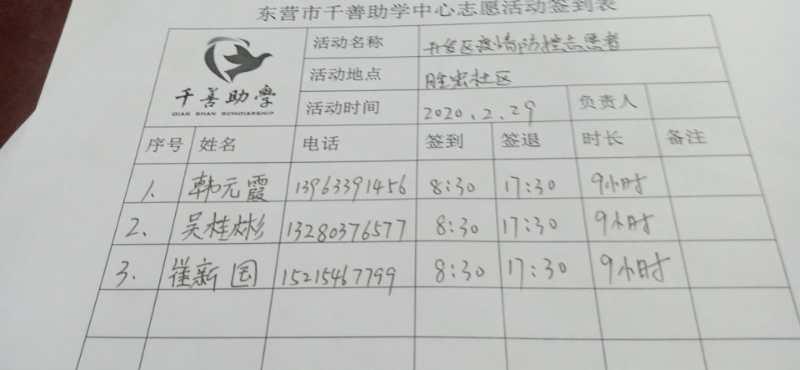 东营市千善助学中心志愿活动签到表
千善助学
QIAN SHAN SCHOLARSHIP
活动名称 开发区疫情防控志愿者
活动地点 胜宏社区
活动时间 2020.2.29 负责人
序号 姓名 电话 签到 签退 时长 备注
1. 韩元霞 13963391456 8:30 17:30 9小时
2、 吴桂彬 13280376577 8:30 17:30 9小时
3. 崔新国 15215467799 8:30 17:30 9小时